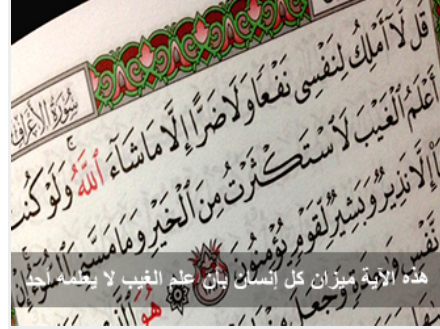 سُورَةُ الأَعْرَافِ
قُل لَّآ أَمْلِكُ لِنَفْسِى نَفْعًا وَلَا ضَرًّا إِلَّا مَا شَآءَ ٱللَّهُ وَلَوْ كُنتُ
أَعْلَمُ ٱلْغَيْبَ لَٱسْتَكْثَرْتُ مِنَ ٱلْخَيْرِ وَمَا مَسَّنِىَ ٱلسُّوٓءُ
إِلَّا نَذِيرٌ وَبَشِيرٌ لِّقَوْمٍ يُؤْمِنُونَ هُوَ
نَّفْسٍ وَٰحِدَةٍ وَجَعَلَ
هذه الآية ميزان كل إنسان بأن علم الغيب لا يعلمه أحد